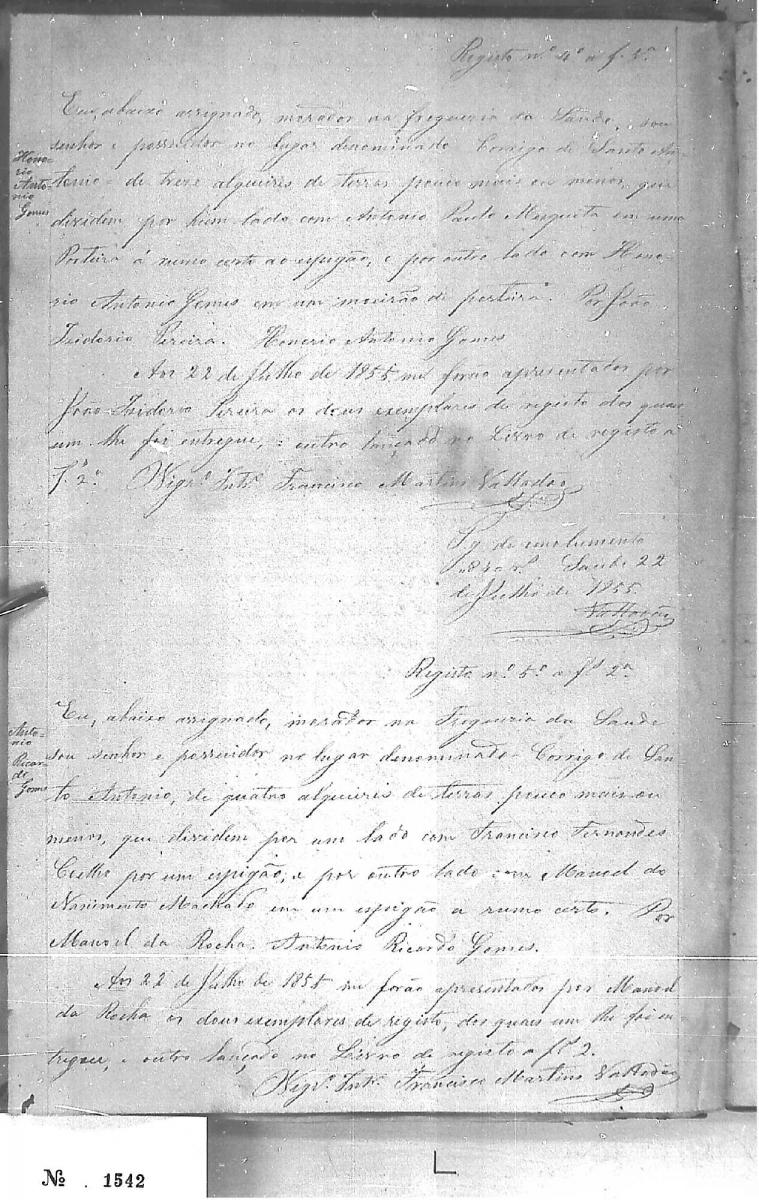 Registo nº 4º a f. 
Honorio Antonio Gomes
Eu, abaixo assignado, morador na freguezia da Saude, sou
senhor e possuidor no lugar denominado Corrigo de Santo An-
tonio de trese alqueires de terras pouco mais ou menos, que
dividem por hum lado com Antonio Paulo em uma
Porteira á rumo certo ao espigão, e por outro lado com Hono-
rio Antonio Gomes em um moirão de Por João
Izidorio Pereira. Honorio Antonio Gomes
Aos 22 de Julho de 1855 me forão apresentados por
João Izidorio Pereira os dous exemplares de registo dos quaes
um lhe foi entregue, e outro lançado no Livro de registo a
fˢ 2ª. Vigrº Intº Francisco Martins Valladão
Pg. de emolumento
Saude 22
de Julho de 1855
Valladão
Registo nº 5º a fˢ 2ª
Antonio Ricardo Gomes
Eu, abaixo assignado, morador na Freguezia da Saude
sou senhor e possuidor no lugar denominado Corrigo de San-
to Antonio, de quatro alqueiris de terras pouco mais ou
menos, que dividem por um lado com Francisco Fernandes
Coelho por um espigão, e por outro lado com Manoel do
Nascimento Machado em um espigão a rumo certo. Por
Manoel da Rocha. Antonio Ricardo Gomes.
Aos 22 de Julho de 1855 me forão apresentados por Manoel
da Rocha os dous exemplares de registo, dos quais um lhe foi en-
tregue, e outro lançado no Livro de registo a fˢ 2.
Vigrº Intº Francisco Martins Valladão
Nº . 1542